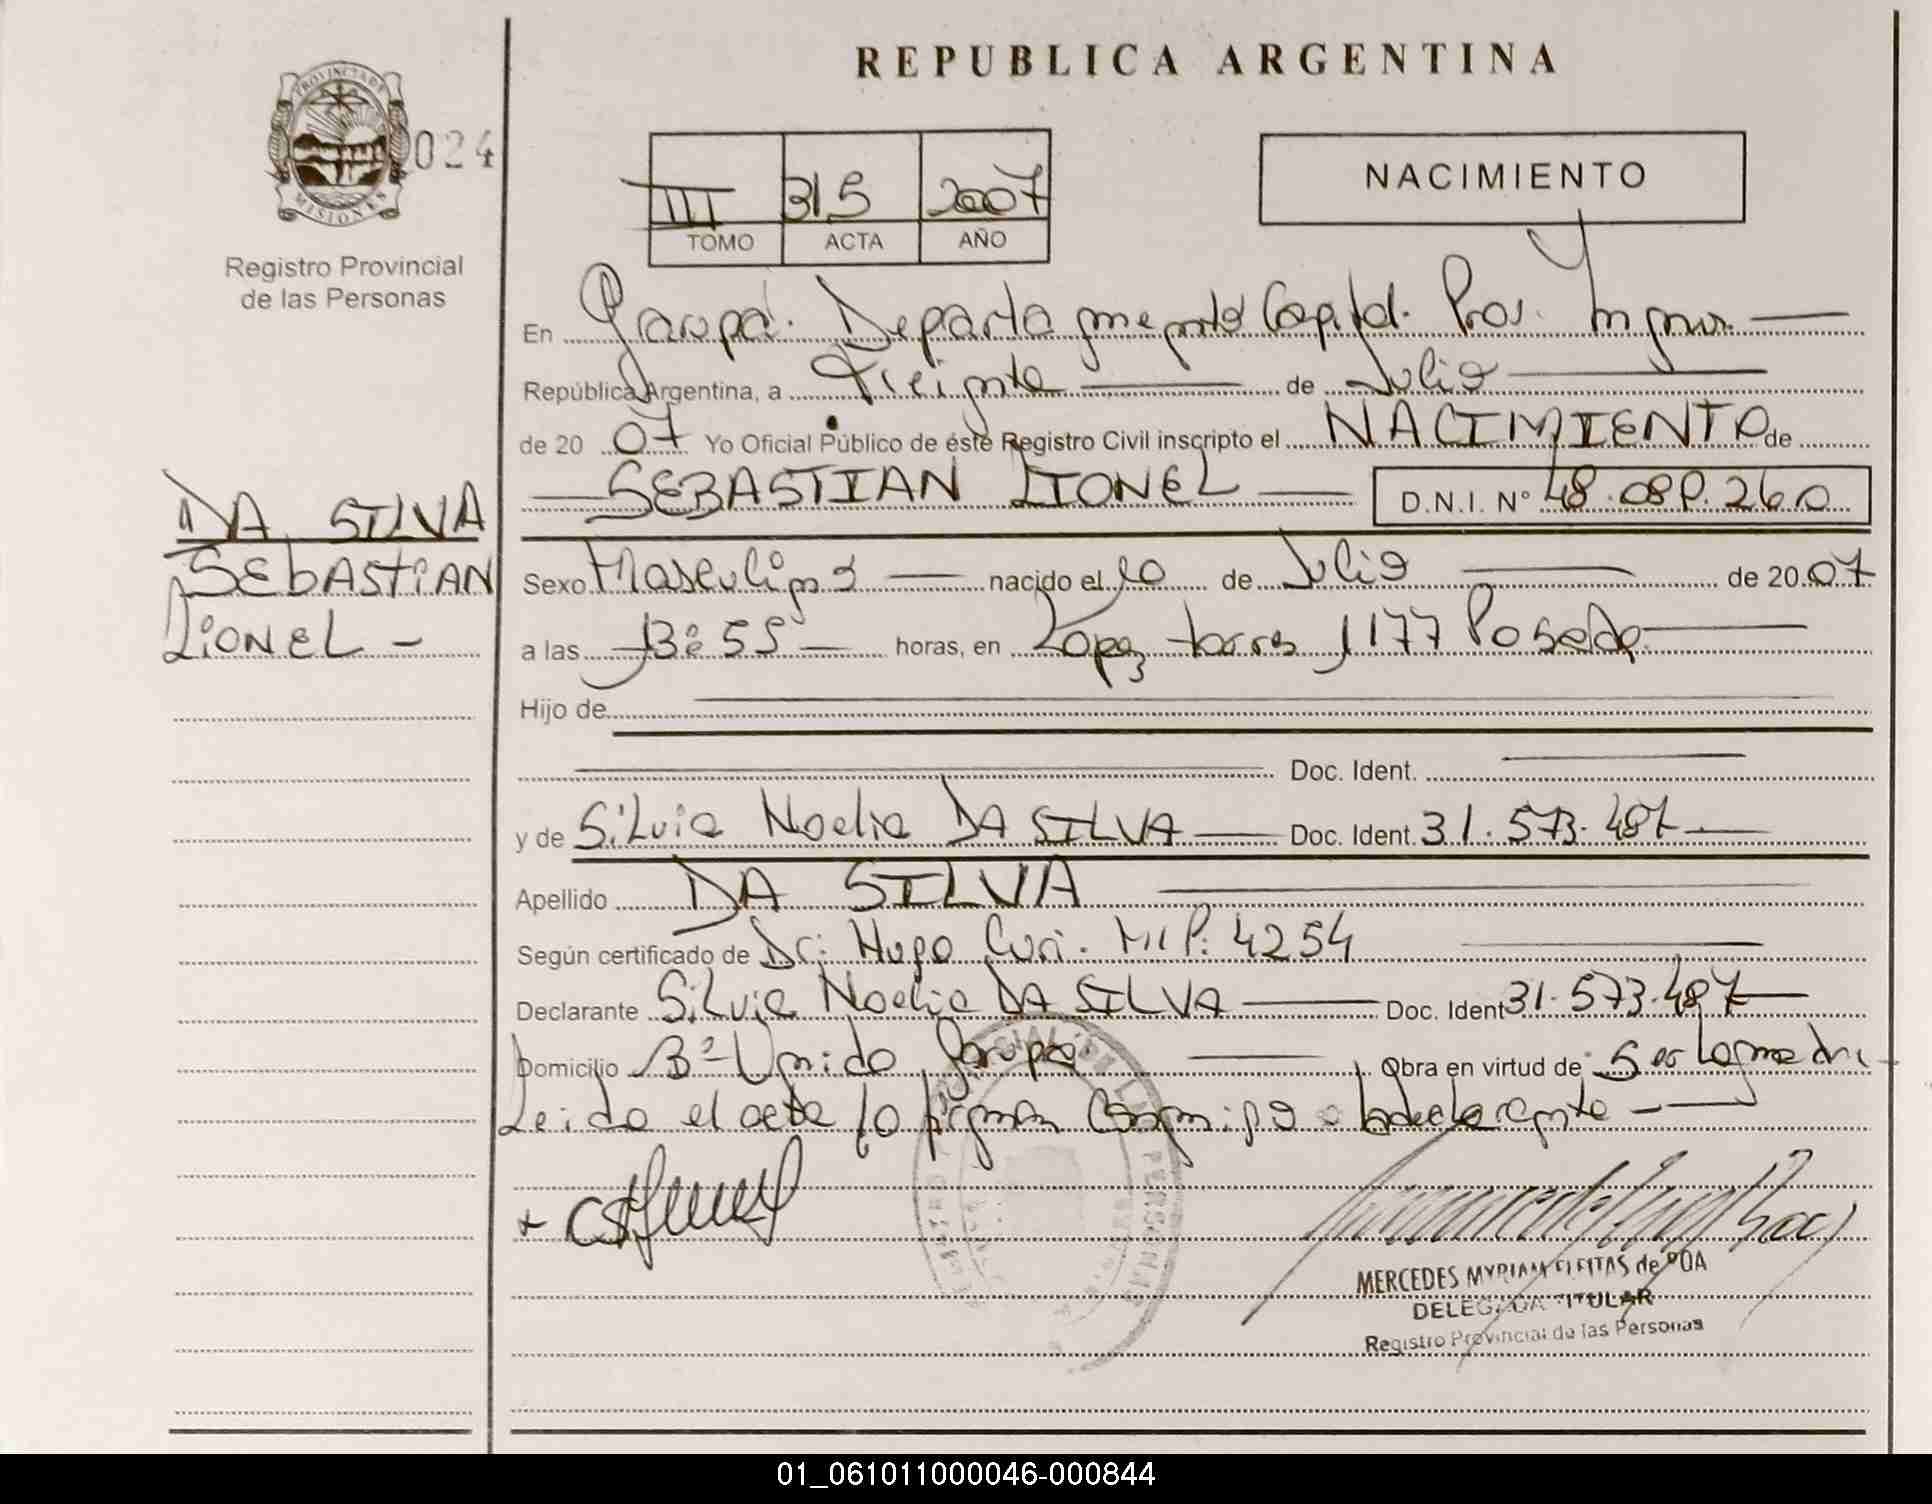 REPUBLICA ARGENTINA
PROVINCIA DE
MISIONES
024
Registro Provincial
de las Personas
III 315 2007
TOMO ACTA AÑO
NACIMIENTO
En Garupá. Departamento Capital. Prov. Misiones
República Argentina, a Treinta de Julio
de 2007 Yo Oficial Público de éste Registro Civil inscripto el NACIMIENTO de
SEBASTIAN LIONEL D.N.I. Nº 48.089.260
DA SILVA
SEbASTIAN
LIONEL -
Sexo Masculino nacido el 10 de Julio de 2007
a las 13:55 horas, en Lopez torres 1177 Posadas
Hijo de
Doc. Ident.
y de Silvia Noelia DA SILVA Doc. Ident. 31.573.487
Apellido DA SILVA
Según certificado de Dr: Hugo Curi. M.P: 4254
Declarante Silvia Noelia DA SILVA Doc. Ident 31.573.487
Domicilio Bº Unido Garupá Obra en virtud de Ser la madre
Leida el acta la firman conmigo la declarante
MERCEDES MYRIAM FLEITAS de POA
DELEGADA TITULAR
Registro Provincial de las Personas
01_061011000046-000844